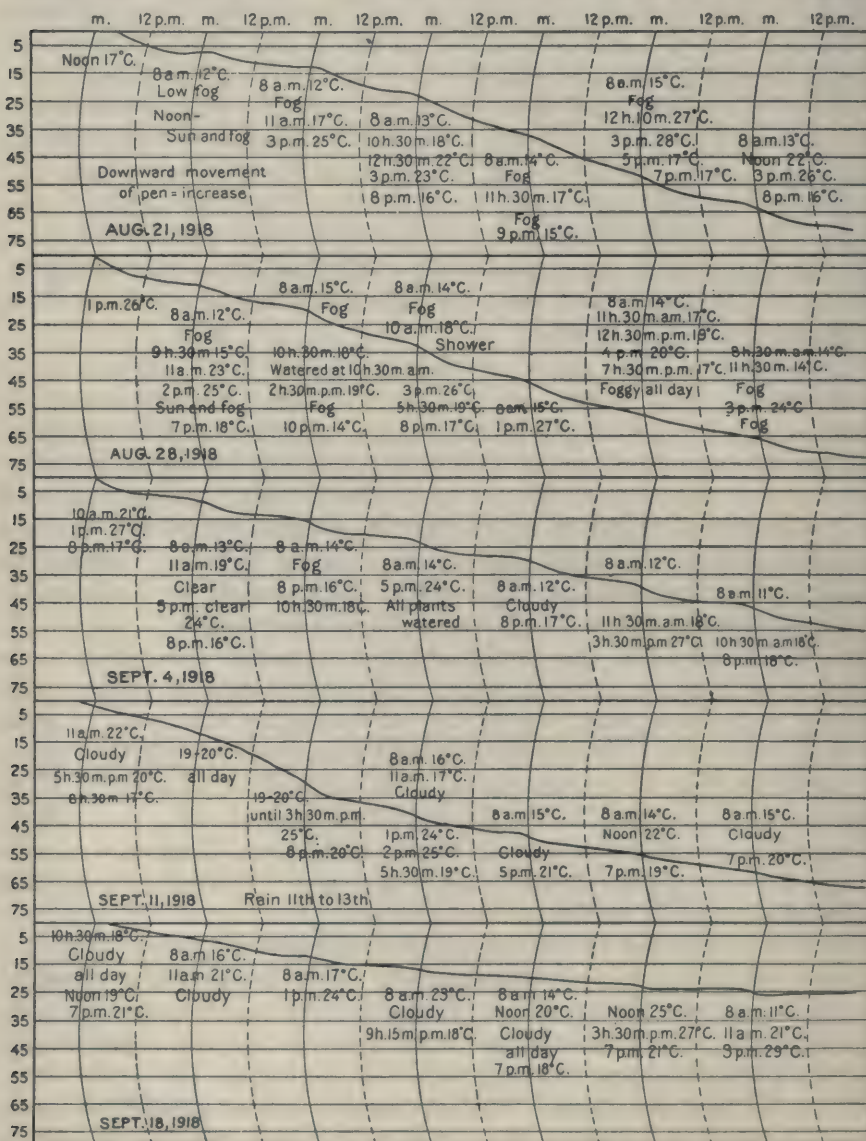 m. 12 p.m. m. 12 p.m. m. 12 p.m. m. 12 p.m. m. 12 p.m. m. 12 p.m. m. 12 p.m.
5
15
25
35
45
55
65
75
Noon 17°C.
8 a.m. 12°C.
Low fog
Noon-
Sun and fog
8 a.m. 12°C.
Fog
11 a.m. 17°C.
3 p.m. 25°C.
8 a.m. 13°C.
10 h. 30 m. 18°C.
12 h. 30 m. 22°C.
3 p.m. 23°C.
8 p.m. 16°C.
8 a.m. 14°C.
Fog
11 h. 30 m. 17°C.
Fog
9 p.m. 15°C.
8 a.m. 15°C.
Fog
12 h. 10 m. 27°C.
3 p.m. 28°C.
5 p.m. 17°C.
7 p.m. 17°C.
8 a.m. 13°C.
Noon 22°C.
3 p.m. 26°C.
8 p.m. 16°C.
Downward movement
of pen = increase
AUG. 21, 1918
5
15
25
35
45
55
65
75
1 p.m. 26°C.
8 a.m. 12°C.
Fog
9 h. 30 m 15°C.
11 a.m. 23°C.
2 p.m. 25°C.
Sun and fog
7 p.m. 18°C.
8 a.m. 15°C.
Fog
10 h. 30 m. 18°C.
Watered at 10 h. 30 m. a.m.
2 h. 30 m. p.m. 19°C.
Fog
10 p.m. 14°C.
8 a.m. 14°C.
Fog
10 a.m. 18°C.
Shower
3 p.m. 26°C.
5 h. 30 m. 19°C.
8 p.m. 17°C.
8 a.m. 15°C.
1 p.m. 27°C.
8 a.m. 14°C.
11 h. 30 m. a.m. 17°C.
12 h. 30 m. p.m. 19°C.
4 p.m. 20°C.
7 h. 30 m. p.m. 17°C.
Foggy all day
8 h. 30 m. a.m. 14°C.
11 h. 30 m. 14°C.
Fog
3 p.m. 24°C
Fog
AUG. 28, 1918
5
15
25
35
45
55
65
75
10 a.m. 21°C.
1 p.m. 27°C.
8 p.m. 17°C.
8 a.m. 13°C.
11 a.m. 19°C.
Clear
5 p.m. clear
24°C.
8 p.m. 16°C.
8 a.m. 14°C.
Fog
8 p.m. 16°C.
10 h. 30 m. 18°C.
8 a.m. 14°C.
5 p.m. 24°C.
All plants
watered
8 a.m. 12°C.
Cloudy
8 p.m. 17°C.
8 a.m. 12°C.
11 h. 30 m. a.m. 18°C.
3 h. 30 m. p.m 27°C.
8 a.m. 11°C.
10 h 30 m. a.m 18°C.
8 p.m. 18°C.
SEPT. 4, 1918
5
15
25
35
45
55
65
75
11 a.m. 22°C.
Cloudy
5 h. 30 m. p.m 20°C.
8 h. 30 m. 17°C.
19-20°C.
all day
19-20°C.
until 3 h 30 m. p.m.
25°C.
8 p.m. 20°C.
8 a.m. 16°C.
11 a.m. 17°C.
Cloudy
1 p.m. 24°C.
2 p.m. 25°C.
5 h. 30 m. 19°C.
8 a.m. 15°C.
Cloudy
5 p.m. 21°C.
8 a.m. 14°C.
Noon 22°C.
7 p.m. 19°C.
8 a.m. 15°C.
Cloudy
7 p.m. 20°C.
SEPT. 11, 1918 Rain 11th to 13th
5
15
25
35
45
55
65
75
10 h. 30 m. 18°C.
Cloudy
all day
Noon 19°C.
7 p.m. 21°C.
8 a.m 16°C.
11 a.m 21°C.
Cloudy
8 a.m. 17°C.
1 p.m. 24°C.
8 a.m. 23°C.
Cloudy
9 h. 15 m p.m. 18°C.
8 a.m 14°C.
Noon 20°C.
Cloudy
all day
7 p.m. 18°C.
Noon 25°C.
3 h. 30 m. p.m. 27°C.
7 p.m. 21°C.
8 a.m. 11°C.
11 a.m. 21°C.
3 p.m. 29°C.
SEPT. 18, 1918